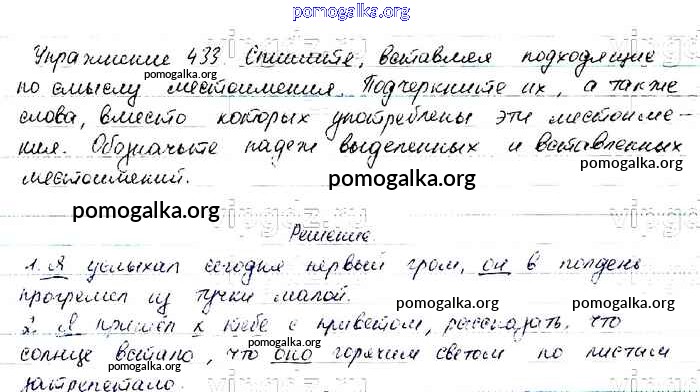 pomogalka.org
Упражнение 433. Спишите, вставляя подходящие
pomogalka.org
по смыслу местоимения. Подчеркните их, а также
pomogalka.org
слова, вместо которых употреблены эти местоиме-
ния. Обозначьте падеж выделенных и вставленных
местоимений.
pomogalka.org
pomogalka.org
Решение.
1. Я услыхал сегодня первый гром, он в полдень
pomogalka.org
прогремел из тучки малой.
pomogalka.org
pomogalka.org
2. Я пришел к тебе с приветом, рассказать, что
солнце встало, что оно горячим светом по листам
pomogalka.org
pomogalka.org
затрепетало.